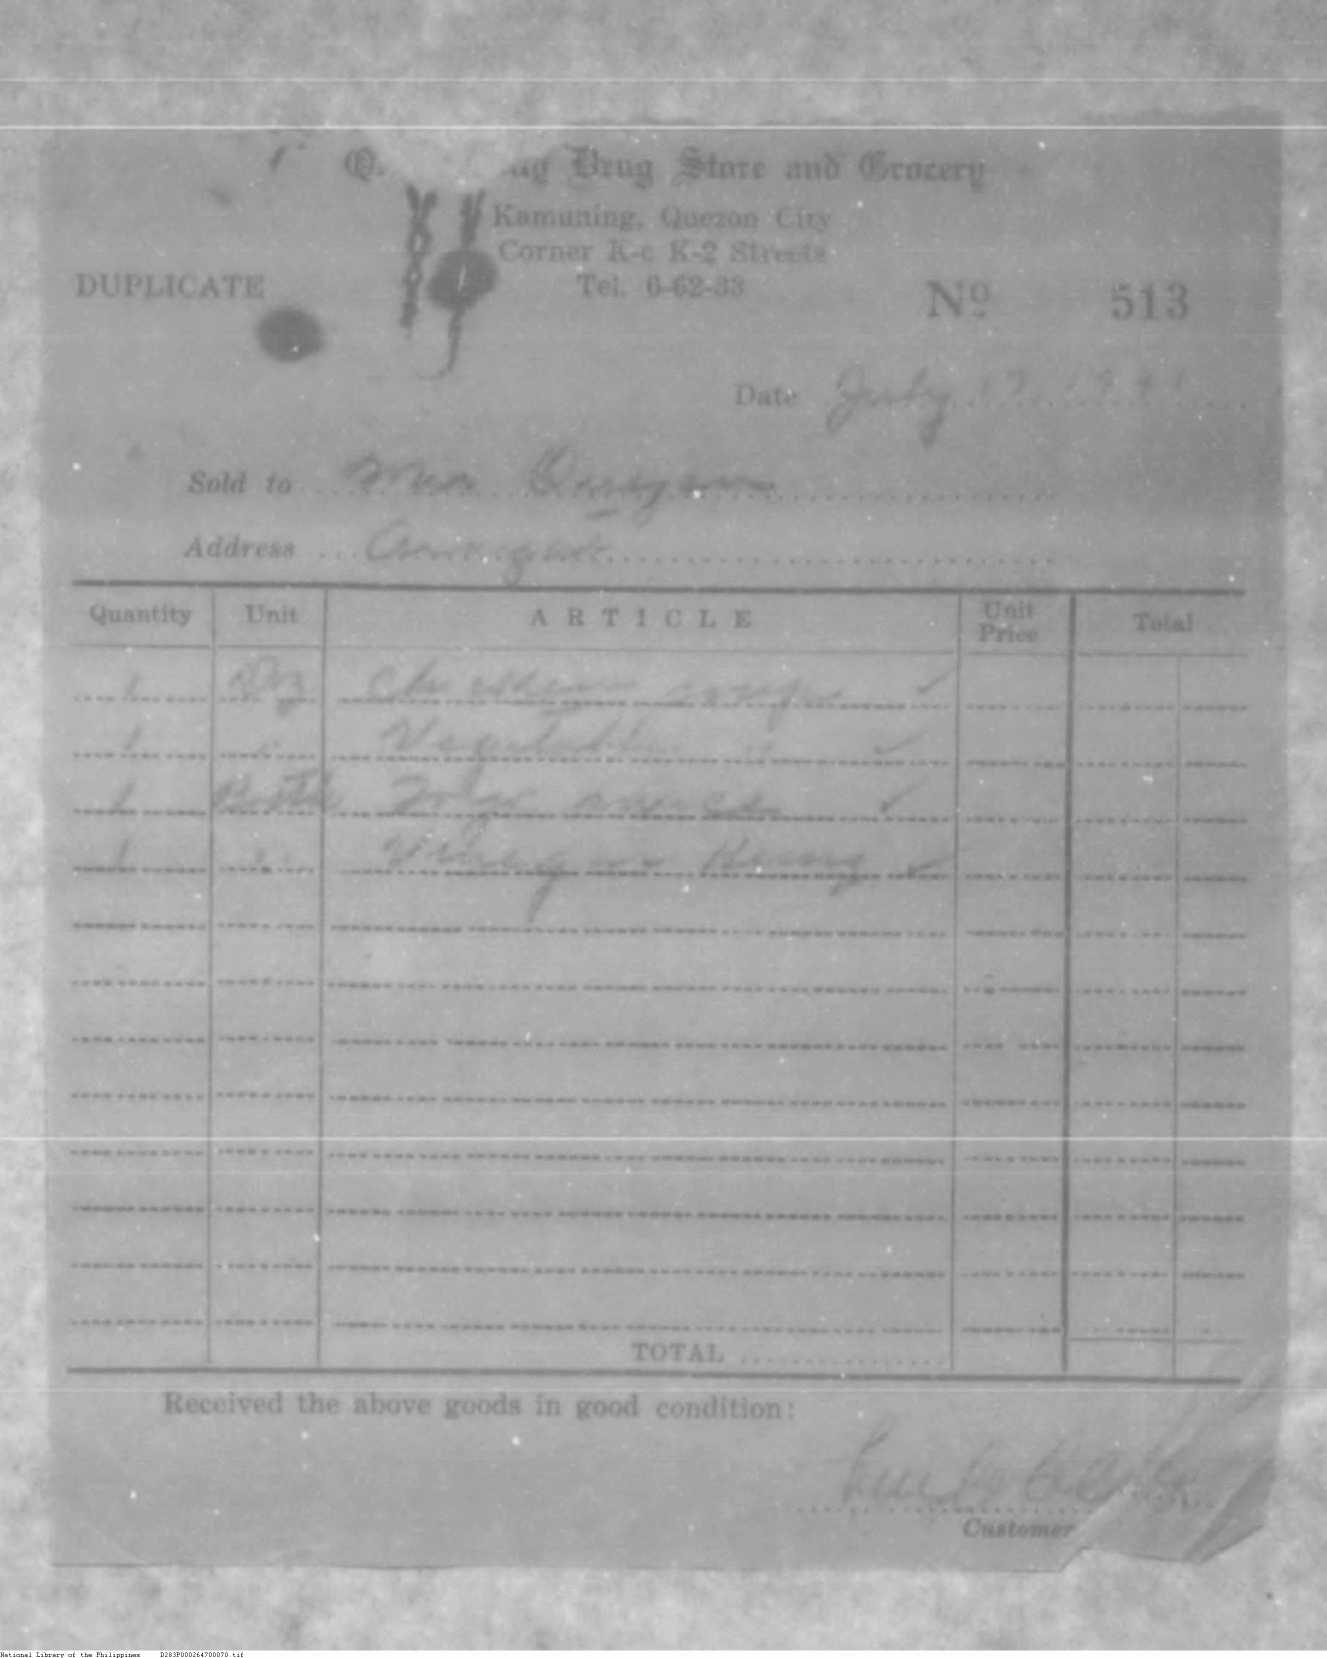 Drug Store and Grocery
Kamuning, Quezon City
Corner K-c K-2 Streets
DUPLICATE
Tel. 6-62-33
Nº 513
Date July 17 1941
Sold to Mrs Quezon
Address
Quantity Unit ARTICLE Unit Price Total
1 Doz Chicken soup ✓
1 " Vegetable " ✓
1 Bottle ✓
1 " Vinegar ✓
TOTAL
Received the above goods in good condition:
Customer
National Library of the Philippines D283P000264700070.tif